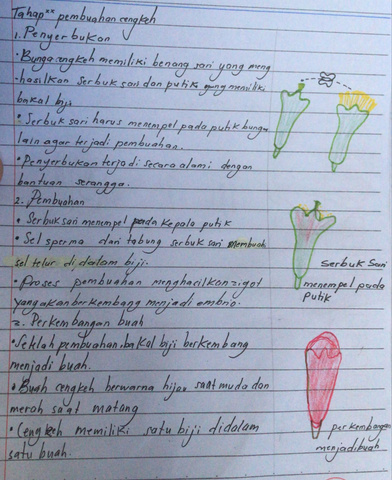 Tahap** pembuahan cengkeh
1. Penyerbukan
• Bunga cengkeh memiliki benang sari yang meng
-hasilkan serbuk sari dan putik yang memiliki
bakal biji
• Serbuk sari harus menempel pada putik bunga
lain agar terjadi pembuahan.
• Penyerbukan terjadi secara alami dengan
bantuan serangga.
2. Pembuahan
• Serbuk sari menempel pada kepala putik
• Sel sperma dari tabung serbuk sari membuah
sel telur di dalam biji.
• Proses pembuahan menghasilkan zigot
yang akan berkembang menjadi embrio.
2. Perkembangan buah
• Setelah pembuahan, bakal biji berkembang
menjadi buah.
• Buah cengkeh berwarna hijau saat muda dan
merah saat matang
• Cengkeh memiliki satu biji didalam
satu buah.
serbuk sari
menempel pada
putik
perkembangan
menjadi buah